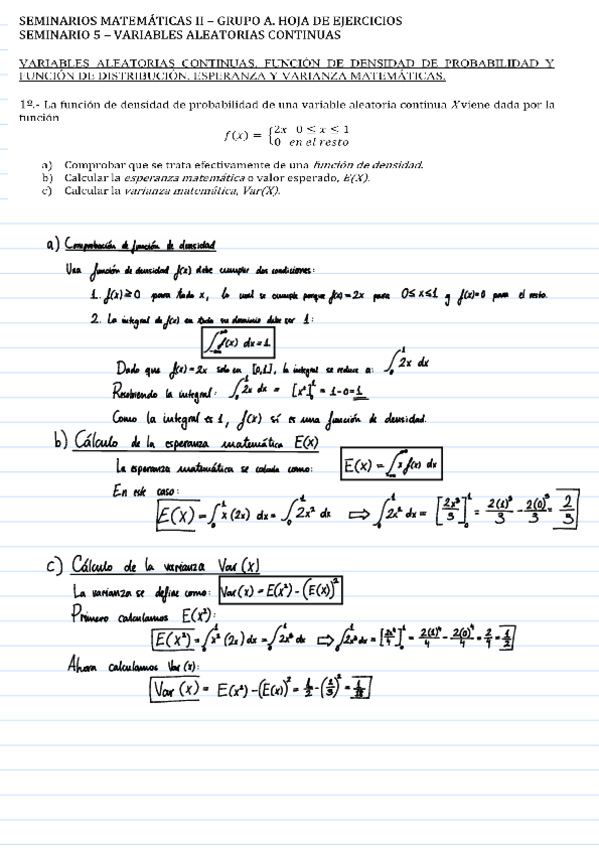 SEMINARIOS MATEMÁTICAS II – GRUPO A. HOJA DE EJERCICIOS
SEMINARIO 5 – VARIABLES ALEATORIAS CONTINUAS
VARIABLES ALEATORIAS CONTINUAS. FUNCIÓN DE DENSIDAD DE PROBABILIDAD Y
FUNCIÓN DE DISTRIBUCIÓN. ESPERANZA Y VARIANZA MATEMÁTICAS.
1º.- La función de densidad de probabilidad de una variable aleatoria continua X viene dada por la
función
f(x) = {2x 0 ≤ x ≤ 1
0 en el resto
a) Comprobar que se trata efectivamente de una función de densidad.
b) Calcular la esperanza matemática o valor esperado, E(X).
c) Calcular la varianza matemática, Var(X).
a) Comprobación de función de densidad
Una función de densidad f(x) debe cumplir dos condiciones:
1. f(x) ≥ 0 para todo x, lo cual se cumple porque f(x) = 2x para 0 ≤ x ≤ 1 y f(x) = 0 para el resto.
2. La integral de f(x) en todo su dominio debe ser 1:
∫_{-∞}^{∞} f(x) dx = 1
Dado que f(x) = 2x solo en [0,1], la integral se reduce a: ∫_0^1 2x dx
Resolviendo la integral: ∫_0^1 2x dx = [x²]_0^1 = 1 - 0 = 1
Como la integral es 1, f(x) sí es una función de densidad.
b) Cálculo de la esperanza matemática E(X)
La esperanza matemática se calcula como: E(X) = ∫_{-∞}^{∞} x f(x) dx
En este caso:
E(X) = ∫_0^1 x(2x) dx = ∫_0^1 2x² dx ⟹ ∫_0^1 2x² dx = [2x³/3]_0^1 = 2(1)³/3 - 2(0)³/3 = 2/3
c) Cálculo de la varianza Var(X)
La varianza se define como: Var(X) = E(X²) - (E(X))²
Primero calculamos E(X²):
E(X²) = ∫_0^1 x²(2x) dx = ∫_0^1 2x³ dx ⟹ ∫_0^1 2x³ dx = [2x⁴/4]_0^1 = 2(1)⁴/4 - 2(0)⁴/4 = 2/4 = 1/2
Ahora calculamos Var(X):
Var(X) = E(X²) - (E(X))² = 1/2 - (2/3)² = 1/18